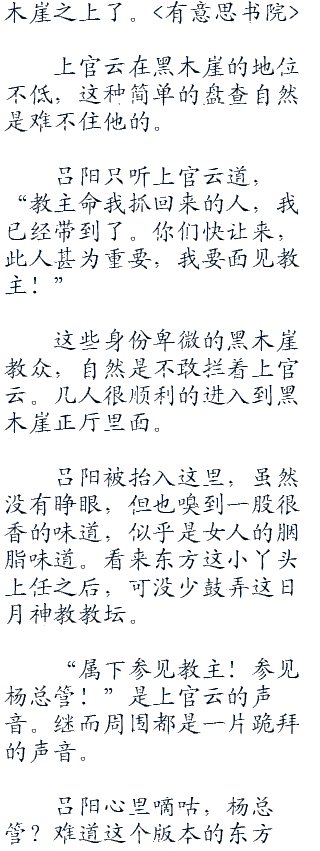 木崖之上了。<有意思书院>
上官云在黑木崖的地位
不低，这种简单的盘查自然
是难不住他的。
吕阳只听上官云道，
“教主命我抓回来的人，我
已经带到了。你们快让来，
此人甚为重要，我要面见教
主！”
这些身份卑微的黑木崖
教众，自然是不敢拦着上官
云。几人很顺利的进入到黑
木崖正厅里面。
吕阳被抬入这里，虽然
没有睁眼，但也嗅到一股很
香的味道，似乎是女人的胭
脂味道。看来东方这小丫头
上任之后，可没少鼓弄这日
月神教教坛。
“属下参见教主！参见
杨总管！”是上官云的声
音。继而周围都是一片跪拜
的声音。
吕阳心里嘀咕，杨总
管？难道这个版本的东方